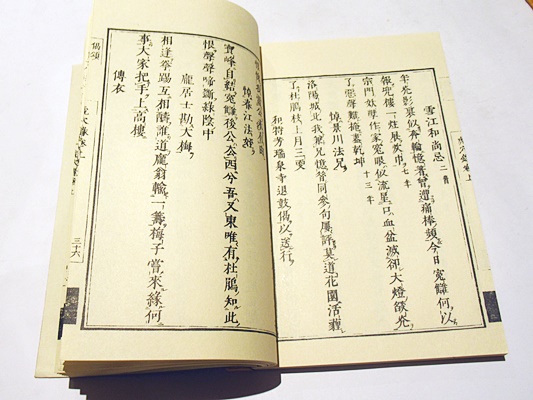 雪江和尚忌 二首
形裏似奔輪憶著曾遭痛棒頭今日寃讎何以
報兜樓一炷展 巾 七年
宗門妖孽作家寃眼似流星口血盆滅卻大燈欲
了惡聲難掩蓋乾坤 十三年
悼景川法兄
洛陽城北我 兄憶昔同參句屢評莫道花園活
了杜鵑枝上月三更
和符芳瑞泉寺退鼓偈以送行
悼春江法姪
寶峰自結寃讎後公 西兮吾又東唯有杜鵑知此
恨聲聲啼斷綠陰中
龐居士勘大梅
相逢拳踢互相酬誰道龐翁輸一籌梅子當來緣何
事大家把手上高樓
傳衣
偈頌
三十六